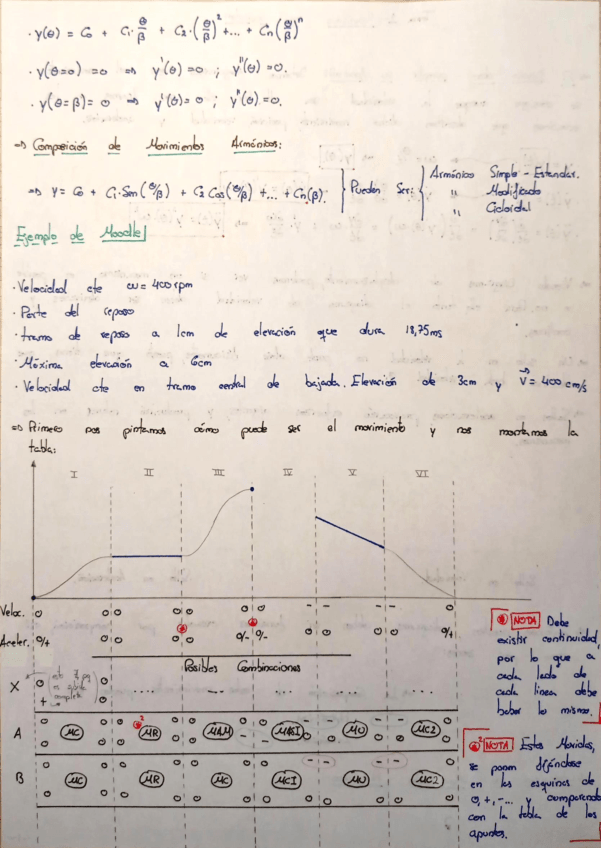 · y(θ) = C₀ + C₁·θ/β + C₂·(θ/β)² + ... + Cn(θ/β)ⁿ
· y(θ=0) = 0 ⇒ y'(θ) = 0 ; y''(θ) = 0.
· y(θ=β) = 0 ⇒ y'(θ) = 0 ; y''(θ) = 0.
⇒ Composición de Movimientos Armónicos:
⇒ y = C₀ + C₁·Sen(θ/β) + C₂ Cos(θ/β) + ... + Cn(β). Pueden Ser: Armónico Simple - Estandar.
" Modificado
" Cicloidal
Ejemplo de Moodle
· Velocidad cte ω = 400 rpm
· Parte del reposo
· tramo de reposo a 1cm de elevación que dura 18,75ms
· Máxima elevación a 6cm
· Velocidad cte en tramo central de bajada. Elevación de 3cm y v = 400 cm/s
⇒ Primero nos pintamos cómo puede ser el movimiento y nos montamos la
tabla:
I II III IV V VI
Veloc. 0 0 0 0 0 0 0 0 - - - - 0
Aceler. 0/+ 0 0 0 0 0/- 0/- 0 0 0 0 0/+
Posibles Combinaciones
X 0 0
+ 0
A MC MR MAM MASI MU MC2
B MC MR MC MCI MU MC2
NOTA Debe
existir continuidad,
por lo que a
cada lado de
cada linea debe
haber lo mismo.
2 NOTA Estos Movidos,
se ponen fijándose
en las esquinas de
0, +, -... y comparando
con la tabla de los
apuntes.